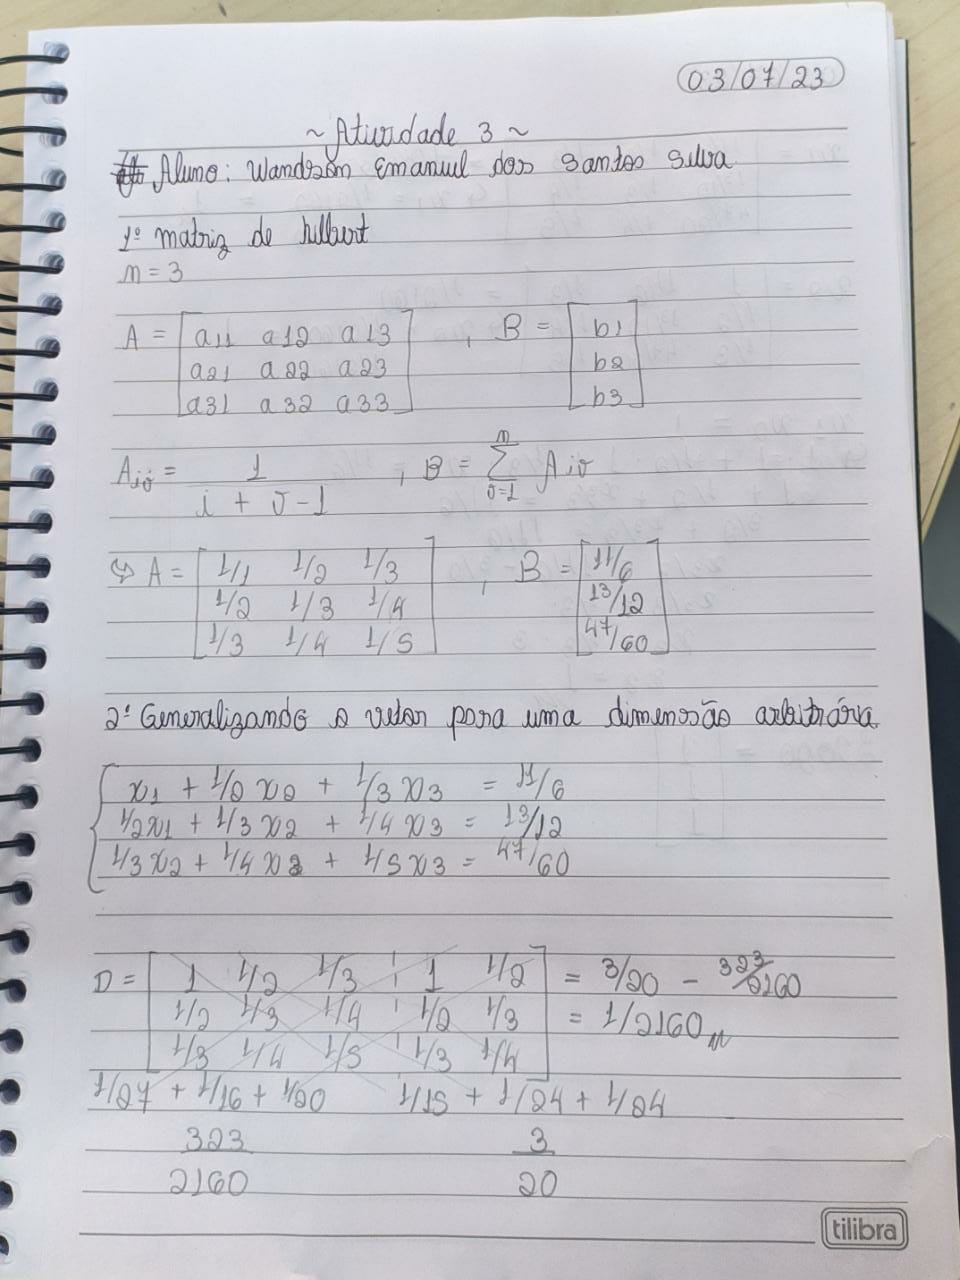 03/07/23
~ Atividade 3 ~
Aluno: Wandson Emanuel dos Santos Silva
1º matriz de hilbert
n = 3
A = [a11 a12 a13 , B = [b1
a21 a22 a23 b2
a31 a32 a33] b3]
Aij = 1 / i + j - 1 , B = n Σ j=1 Aij
↳ A = [1/1 1/2 1/3 , B = [11/6
1/2 1/3 1/4 13/12
1/3 1/4 1/5] 47/60]
2º Generalizando o vetor para uma dimensão arbitrária
{ x1 + 1/2 x2 + 1/3 x3 = 11/6
1/2x1 + 1/3 x2 + 1/4 x3 = 13/12
1/3 x2 + 1/4 x3 + 1/5 x3 = 47/60
D = [1 1/2 1/3 ¦ 1 1/2] = 3/20 - 323/2160
1/2 1/3 1/4 ¦ 1/2 1/3 = 1/2160
1/3 1/4 1/5 ¦ 1/3 1/4
1/27 + 1/16 + 1/20 1/15 + 1/24 + 1/24
323 3
2160 20
tilibra